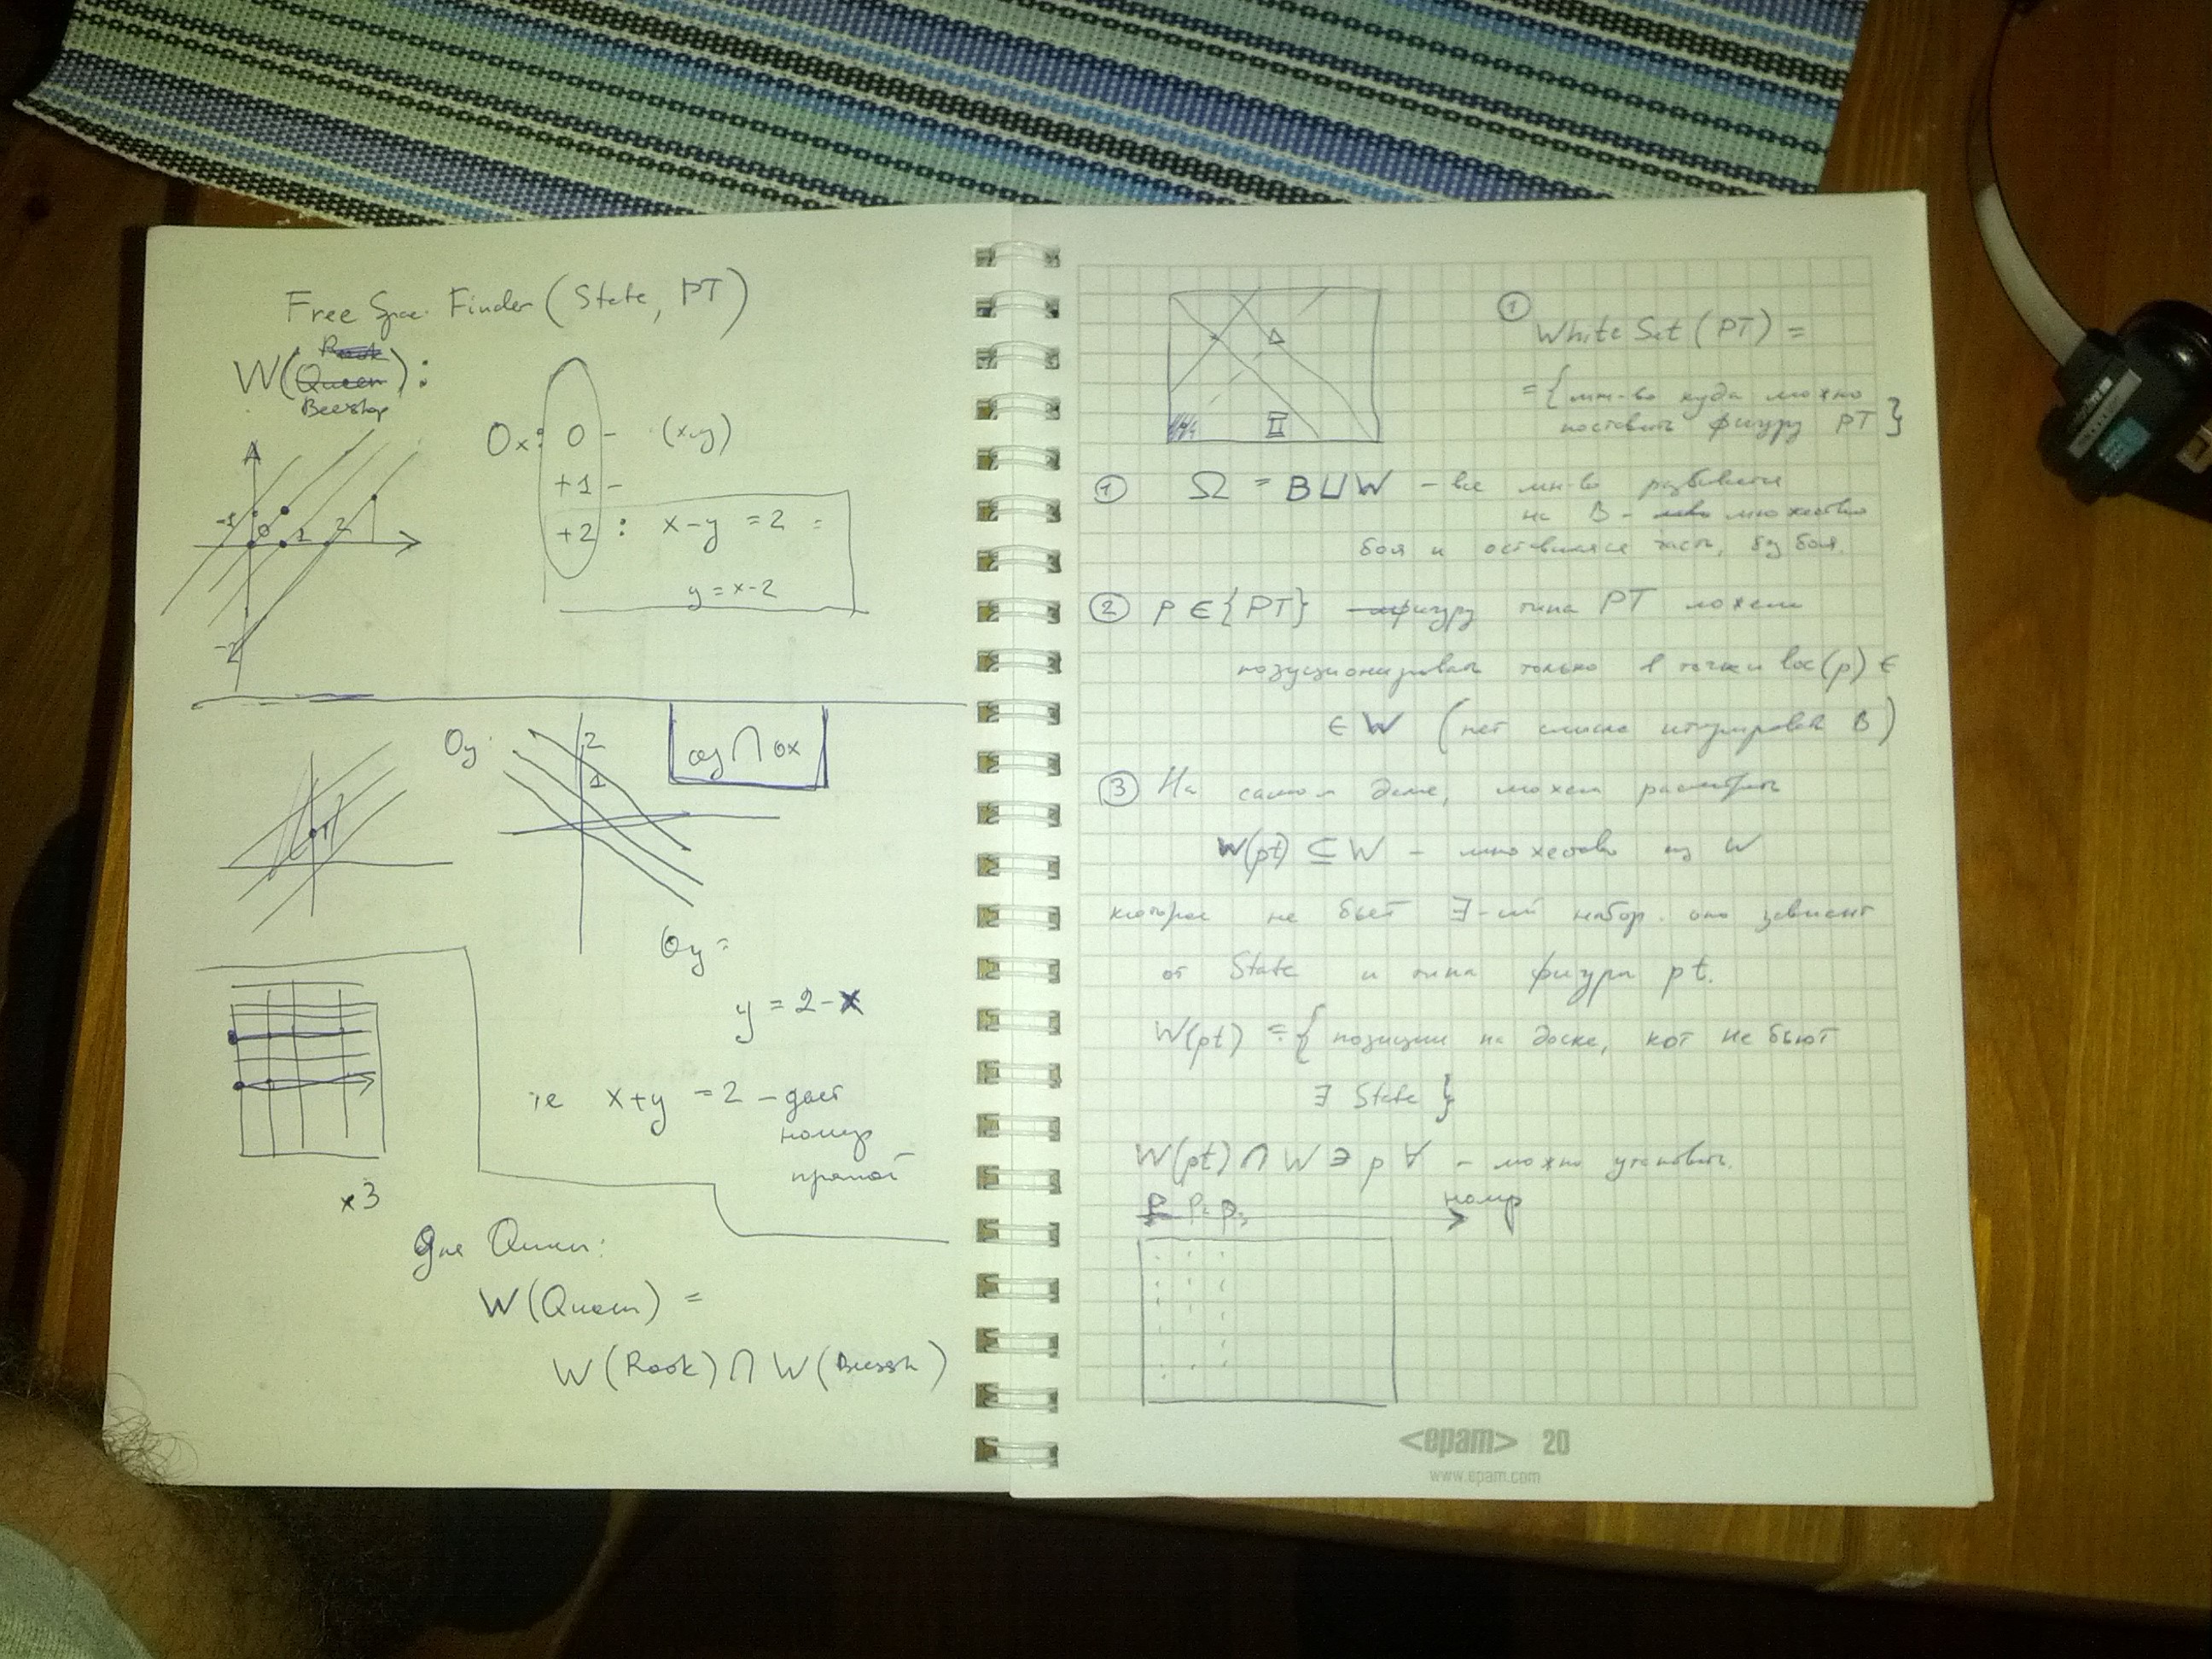 Free Space Finder (State, PT)
Rook
W(Queen):
Beeshop
Ox: 0 - (x-y)
+1 -
+2 : x-y = 2 =
y = x-2
-1
0
1
2
-2
Oy:
2
1
oy ∩ ox
Oy =
y = 2-x
т.е x+y = 2 - дает
номер
прямой
x3
Для Queen:
W(Queen) =
W(Rook) ∩ W(Beesh)
① White Set (PT) =
= { мн-во куда можно
поставить фигуру PT }
① Ω = B ⊔ W - все мн-во разбивается
на B - множество
боя и оставшаяся часть, без боя.
② p ∈ {PT} фигуру типа PT можем
позиционировать только в точки loc(p) ∈
∈ W (нет смысла B)
③ На самом деле, можем рассмотреть
W(pt) ⊆ W - множество из W
которое не бьет ∃-ий набор. оно зависит
от State и типа фигуры pt.
W(pt) = { позиции на доске, кот не бьют
∃ State }
W(pt) ∩ W ∋ p ∀ - можно установить.
P P₂ P₃
номер
<epam> 20
www.epam.com